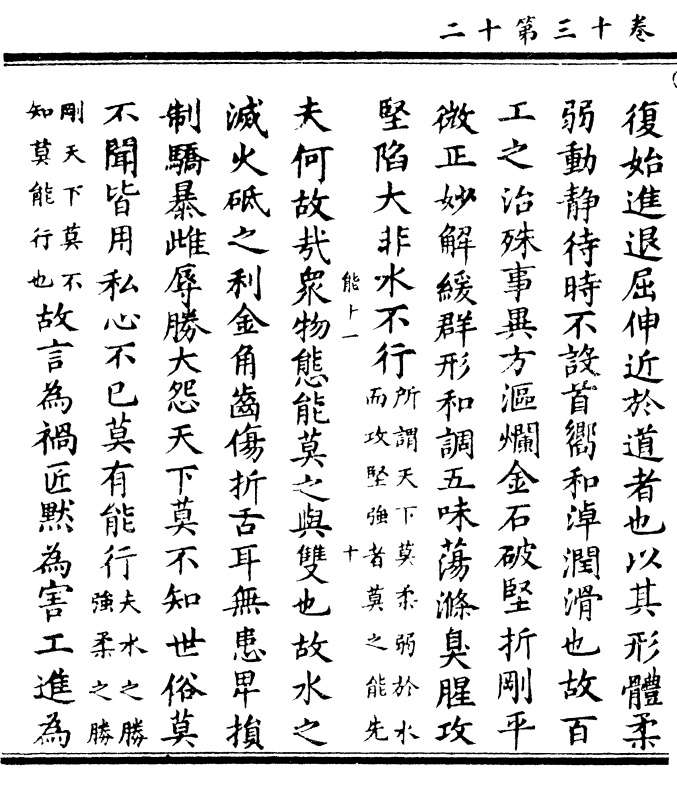 卷十三第十二
復始進退屈伸近於道者也以其形體柔
弱動静待時不設首嚮和淖潤滑也故百
工之治殊事異方漚爛金石破堅折剛平
微正妙解緩群形和調五味蕩滌臭腥攻
堅陷大非水不行所謂天下莫柔弱於水
而攻堅強者莫之能先
能卜一
十
夫何故㦲衆物態能莫之與雙也故水之
滅火砥之利金角齒傷折舌耳無患卑損
制驕暴雌辱勝大怨天下莫不知世俗莫
不聞皆用私心不已莫有能行夫水之勝
強柔之勝
剛天下莫不
知莫能行也故言為禍匠黙為害工進為